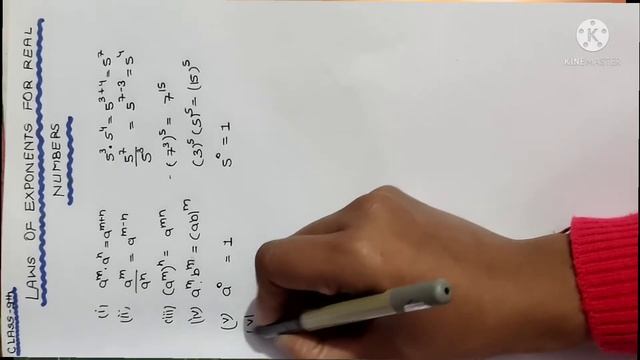 CLASS-9th
LAWS OF EXPONENTS FOR REAL
NUMBERS
(i) aᵐ.aⁿ = aᵐ⁺ⁿ 5³.5⁴ = 5³⁺⁴ = 5⁷
(ii) aᵐ/aⁿ = aᵐ⁻ⁿ 5⁷/5³ = 5⁷⁻³ = 5⁴
(iii) (aᵐ)ⁿ = aᵐⁿ (7³)⁵ = 7¹⁵
(iv) aᵐ.bᵐ = (ab)ᵐ (3)⁵(5)⁵ = (15)⁵
(v) a⁰ = 1 5⁰ = 1
(vi
K
KINEMASTER